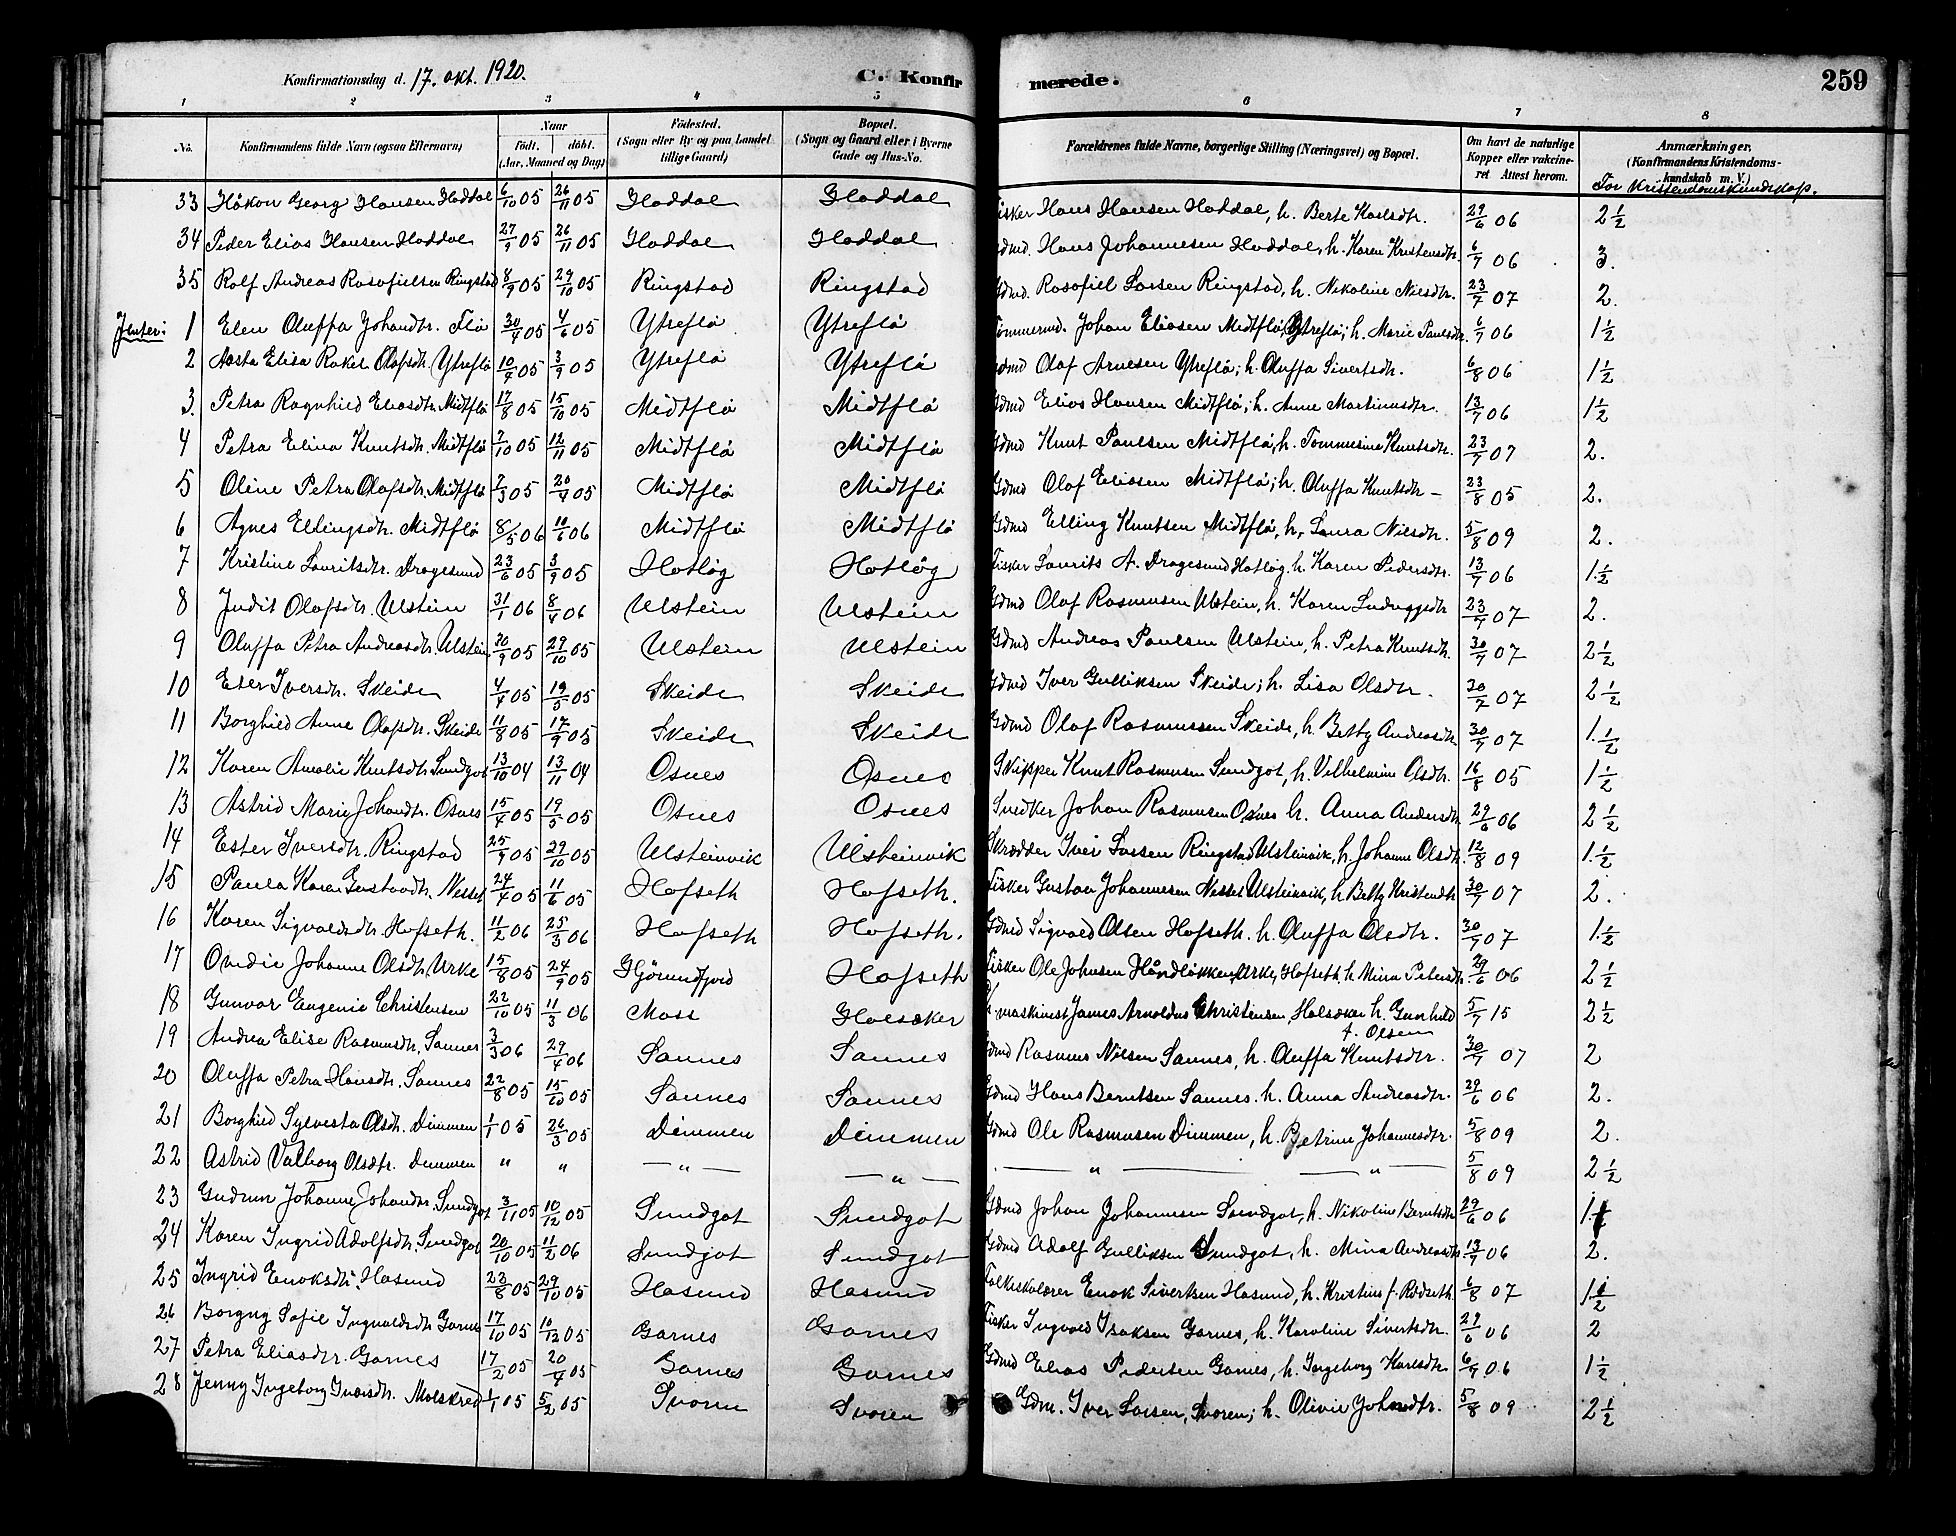 Konfirmationsdag d. 17. okt. 1920.
C. Konfir
merede.
259
1 2 3 4 5 6 7 8
No. Konfirmandens fulde Navn (ogsaa Efternavn) Naar Födt. döbt. (Aar, Maaned og Dag) Födested. (Sogn eller By og paa Landet tillige Gaard) Bopæl. (Sogn og Gaard eller i Byerne Gade og Hus-No. Forældrenes fulde Navne, borgerlige Stilling (Næringsvei) og Bopæl. Om havt de naturlige Kopper eller vaccineret Attest herom. Anmærkninger. (Konfirmandens Kristendomskundskab m. V.)
For Kristendomskundskap.
33 Håkon Georg Hansen Haddal 6/10 05 26/11 05 Haddal Haddal Fisker Hans Hansen Haddal, h. Berte Karlsdtr. 29/6 06 2 1/2
34 Peder Elias Hansen Haddal 27/9 05 26/11 05 Haddal Haddal Gdmd. Hans Johannesen Haddal, h. Karen Kristensdtr. 6/7 06 3.
35 Rolf Andreas Rasofielsen Ringstad 8/9 05 29/10 05 Ringstad Ringstad Gdmd. Rosofiel Larsen Ringstad, h. Nikoline Nilsdtr. 23/7 07 2.
Jenter:
1 Elen Oluffa Johandtr. Flø 30/4 05 4/6 05 Ytreflø Ytreflø Tømmermd. Johan Eliasen Midtflø, Ytreflø; h. Marie Paulsdtr. 6/7 06 1 1/2
2 Aasta Elisa Rakel Olafsdtr. Ytreflø 10/4 05 3/9 05 Ytreflø Ytreflø Gdmd Olaf Arnesen Ytreflø; h. Oluffa Sivertsdtr. 6/8 06 1 1/2
3. Petra Ragnhild Eliasdtr. Midtflø 17/8 05 15/10 05 Midtflø Midtflø Gdmd Elias Hansen Midtflø; h. Anne Martinusdtr. 13/7 06 1 1/2
4 Petra Elina Knutsdtr. Midtflø 7/10 05 12/11 05 Midtflø Midtflø Gdmd Knut Paulsen Midtflø, h. Tommesine Knutsdtr. 23/7 07 2.
5 Oline Petra Olafsdtr. Midtflø 7/3 05 20/4 05 Midtflø Midtflø Gdmd Olaf Eliasen Midtflø; h. Oluffa Knutsdtr – 23/8 05 2.
6 Agnes Ellingsdtr. Midtflø 8/5 06 10/6 06 Midtflø Midtflø Gdmd Elling Knutsen Midtflø, h. Laura Nilsdtr. 5/8 09 2.
7 Kristine Lauritsdtr. Dragesund 23/6 05 3/9 05 Hatløg Hatløg Fisker Laurits A. Dragesund Hatløg, h. Karen Pedersdtr. 13/7 06 1. 1/2
8 Judit Olafsdtr. Ulstein 31/1 06 8/4 06 Ulstein Ulstein Gdmd Olaf Rasmusen Ulstein, h. Karen Ludvigsdtr 23/7 07 2.
9 Oluffa Petra Andreasdtr. Ulstein 20/9 05 29/10 05 Ulstein Ulstein Gdmd Andreas Paulsen Ulstein, h. Petra Knutsdtr. 30/7 07 2 1/2
10 Ester Iversdtr. Skeide 4/4 05 19/5 05 Skeide Skeide Gdmd Iver Gulliksen Skeide; h. Lisa Olsdtr. 30/7 07 2 1/2
11 Borghild Anne Olafsdtr. Skeide 11/8 05 17/9 05 Skeide Skeide Gdmd Olaf Rasmussen Skeide, h. Betty Andreasdtr. 30/7 07 1. 1/2
12 Karen Amalie Knutsdtr. Sundgot 13/10 04 13/11 04 Osnes Osnes Skipper Knut Rasmusen Sundgot, h. Vilhelmine Olsdtr. 16/8 05 1 1/2
13 Astrid Marie Johandtr. Osnes 15/4 05 19/5 05 Osnes Osnes Snedker Johan Rasmusen Osnes h. Anna Andersdtr. 29/6 06 2 1/2
14 Ester Iversdtr. Ringstad 25/9 05 29/10 05 Ulsteinvik Ulsteinvik Skrædder Iver Larsen Ringstad Ulsteinvik, h. Johanne Olsdtr. 12/8 09 1. 1/2
15 Paula Karen Gustavdtr. Nesset 24/4 05 11/6 05 Hofseth Hofseth. Fisker Gustav Johannesen Nesset Ulsteinvik, h. Betty Kristendtr 30/7 07 2.
16 Karen Sigvaldsdtr. Hofseth. 11/2 06 25/3 06 Hofseth Hofseth. Gdmd Sigvald Olsen Hofseth. h. Oluffa Olsdtr. 30/7 07 1. 1/2
17 Ovidie Johanne Olsdtr Urke 15/8 05 24/9 05 Hjørundfjord Hofseth Fisker Ole Johnsen Håndløkken, Urke, Hofseth, h. Mina Petersdtr. 29/6 06 2 1/2
18 Gunvor Eugenie Christensen 22/10 05 11/3 06 Moss Halsæker maskinist James Arnoldus Christensen, Halsæker h. Gunhild f. Olsen 5/7 15 2 1/2
19 Andrea Elise Rasmusdtr. Sannes 3/3 06 29/4 06 Sannes Sannes Gdmd Rasmus Nilsen Sannes, h. Oluffa Knutsdtr. 30/7 07 2
20 Oluffa Petra Hansdtr. Sannes 22/8 05 15/10 05 Sannes Sannes Gdmd Hans Berntsen Sannes. h. Anna Andreasdtr. 29/6 06 2.
21 Borghild Sylvesta Olsdtr. Dimmen 1/1 05 26/3 05 Dimmen Dimmen Gdmd Ole Rasmusen Dimmen, h. Petrine Johannesdtr. 5/8 09 2.
22 Astrid Valborg Olsdtr. Dimmen " " — " — — " — — " — — " — 5/8 09 2 1/2
23 Gudrun Johanne Johandtr Sundgot 3/11 05 10/12 05 Sundgot Sundgot Gdmd Johan Johannesen Sundgot, h. Nikoline Berntsdtr 29/6 06 1.
24 Karen Ingrid Adolfsdtr. Sundgot 20/10 05 11/2 06 Sundgot Sundgot Gdmd Adolf Gulliksen Sundgot, h. Mina Andreasdtr. 13/7 06 2.
25 Ingrid Enoksdtr. Hasund 23/8 05 29/10 05 Hasund Hasund Folkeskolærer Enok Sivertsen Hasund, h. Kristine f. Rødseth. 6/8 07 1 1/2
26 Borgny Sofie Ingvaldsdtr Garnes 17/10 05 10/12 05 Garnes Garnes Fisker Ingvald Isaksen Garnes, h. Karoline Sivertsdtr. 29/6 06 2
27 Petra Eliasdtr. Garnes 17/2 05 20/4 05 Garnes Garnes Gdmd Elias Pedersen Garnes, h. Ingeborg Karlsdtr. 6/7 06 1 1/2
28 Jenny Ingeborg Iversdtr. Molskred 1/1 05 5/2 05 Svoren Svoren Gdm. Iver Larsen, Svoren; h. Olivie Johndtr. 5/8 09 2 1/2